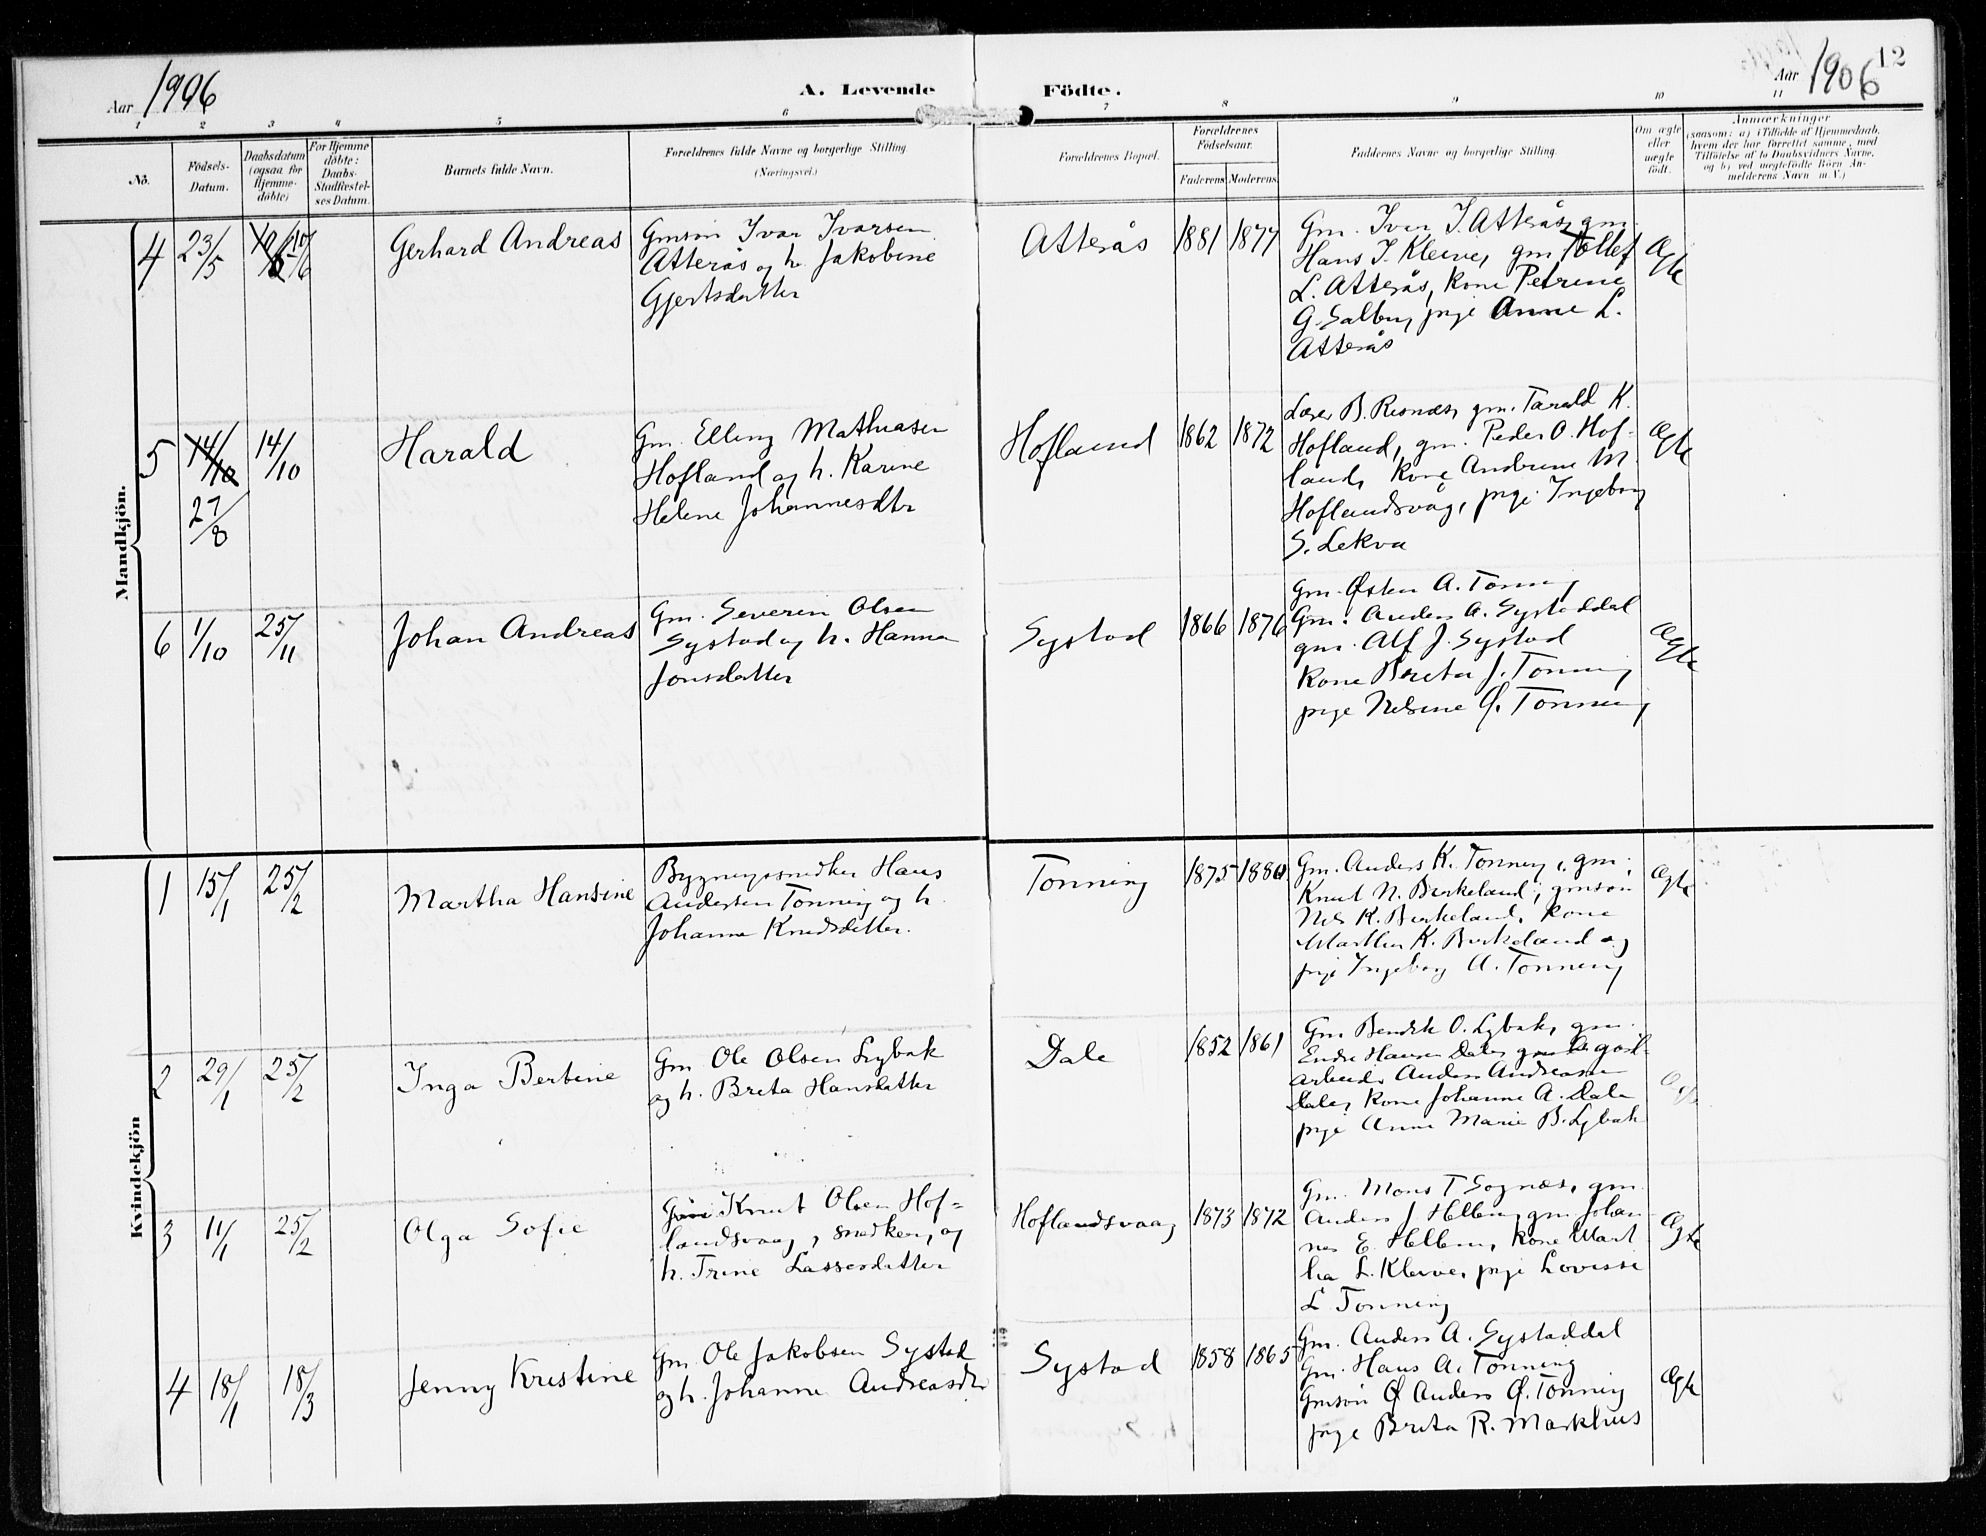 Aar 1906
A. Levende Födte.
Aar 1906
12
1 2 3 4 5 6 7 8 9 10 11
No.
Födsels-Datum.
Daabsdatum (ogsaa for Hjemme-döbte)
For Hjemme döbte: Daabs-Stadfestel-ses Datum.
Barnets fulde Navn.
Forældrenes fulde Navne og borgerlige Stilling.
(Næringsvei.)
Forældrenes Bopæl.
Forældrenes Födselsaar.
Faderens Moderens
Faddernes Navne og borgerlige Stilling.
Om ægte eller uægte födt.
Anmærkninger
(saasom: a) i Tilfælde af Hjemmedaab,
hvem der har forrettet samme, med
Tilföielse af to Daabsvidners Navne,
og b) ved uægtefödte Börn An-
melderens Navn m. V.)
Mandkjön.
4 23/5 10/6 Gerhard Andreas
Gmsön Ivar Ivarsen
Atterås og h. Jakobine
Gjertsdatter
Atterås 1881 1877
Gm. Iver I. Atterås, gm.
Hans I. Kleive, gm. Tollef
L. Atterås, kone Petrine
G. Salbu, pige Anne L.
Atterås
Ægte
5 14/10 27/8 14/10 Harald
Gm. Elling Mathiasen
Hofland og h. Karine
Helene Johannesdtr
Hofland 1862 1872
Lærer B. Risnæs, gm. Tarald K.
Hofland, gm. Peder O. Hof-
land, kone Andrine M.
Hoflandsvåg, pige Ingeborg
S. Lekva
Ægte
6 1/10 25/11 Johan Andreas
Gm. Severin Olsen
Systad og h. Hanna
Jonsdatter
Systad 1866 1876
Gm. Østen A. Tonning
Gm. Anders A. Systaddal
gm. Alf J. Systad
Kone Breta J. Tonning
pige Nelsine Ø. Tonning
Ægte
Kvindekjön
1 15/1 25/2 Martha Hansine
Bygningssnedker Hans
Andersen Tonning og h.
Johanna Knudsdatter.
Tonning 1875 1880
Gm. Anders K. Tonning, gm.
Knut N. Birkeland, gmsön
Nils K. Birkeland, kone
Martha K. Birkeland og
pige Ingeborg A. Tonning
Ægte
2 29/1 25/2 Inga Bertine
Gm Ole Olsen Lybak
og h. Breta Hansdatter
Dale 1852 1861
Gm Bendik O. Lybak, gm.
Endre Hansen Dale,
arbeider Anders Andreasen
Dale, kone Johanne A. Dale
pige Anna Marie B. Lybak
3 11/1 25/2 Olga Sofie
Knut Olsen Hof-
landsvaag, snedker, og
h. Trine Lassesdatter
Hoflandsvaag 1873 1872
Gm. Mons T Sognæs, gm.
Anders J Hellen, gm Johan-
nes E. Hellen, kone Mart
ha L. Kleive, pige Lovisse
L Tonning
Ægte
4 18/1 18/3 Jenny Kristine
Gm Ole Jakobsen Systad
og h. Johanna Andreasdtr
Systad 1858 1865
Gm. Anders A. Systaddal
Gm. Hans A. Tonning
Gmsön Ø Anders Ø. Tonning
pige Breta R. Markhus
Ægte